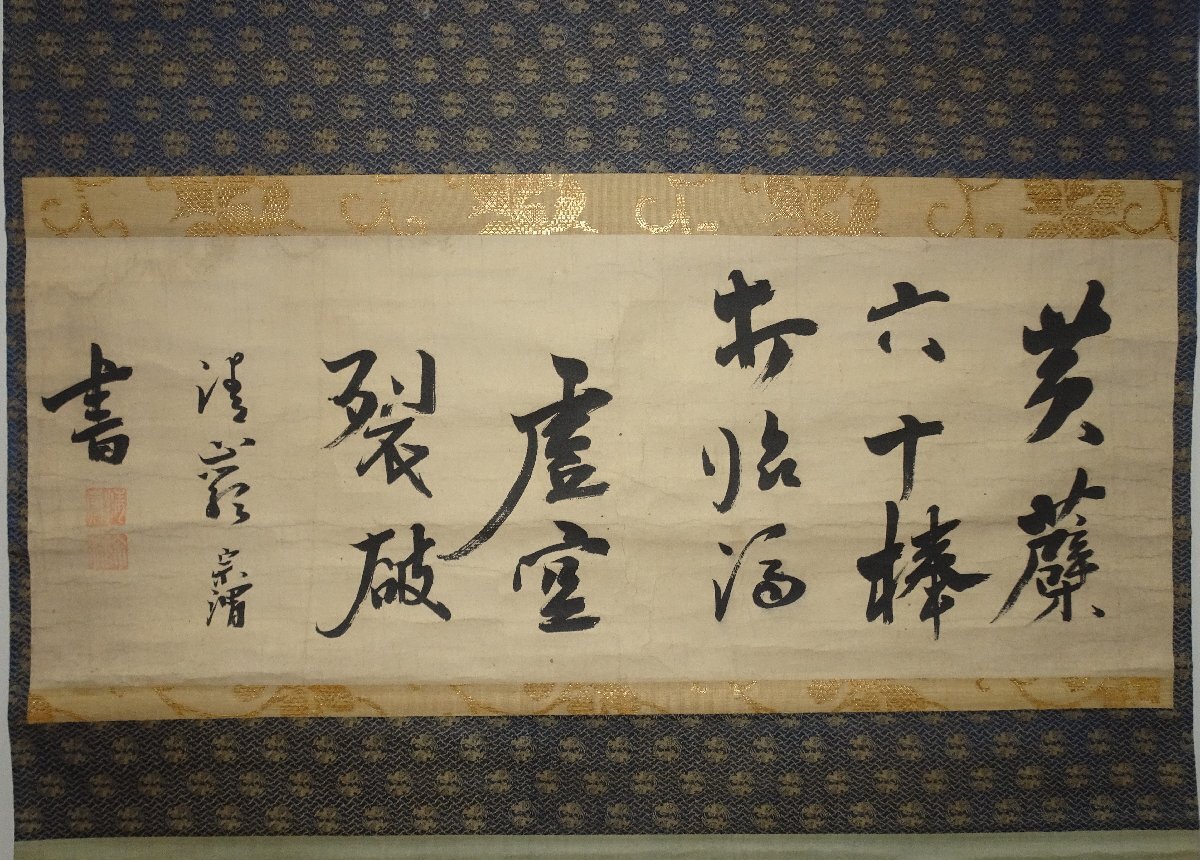 黄蘗
六十棒
打临済
虚空
裂破
清巌 宗渭
書